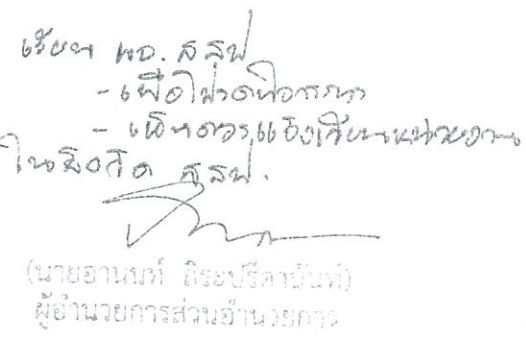 เรียน ผอ. สสฟ
- เพื่อโปรดพิจารณา
- เห็นควรแจ้งเวียนหน่วยงาน
ในสังกัด สสฟ.
(นายอานนท์
ผู้อำนวยการส่วนอำนวยการ